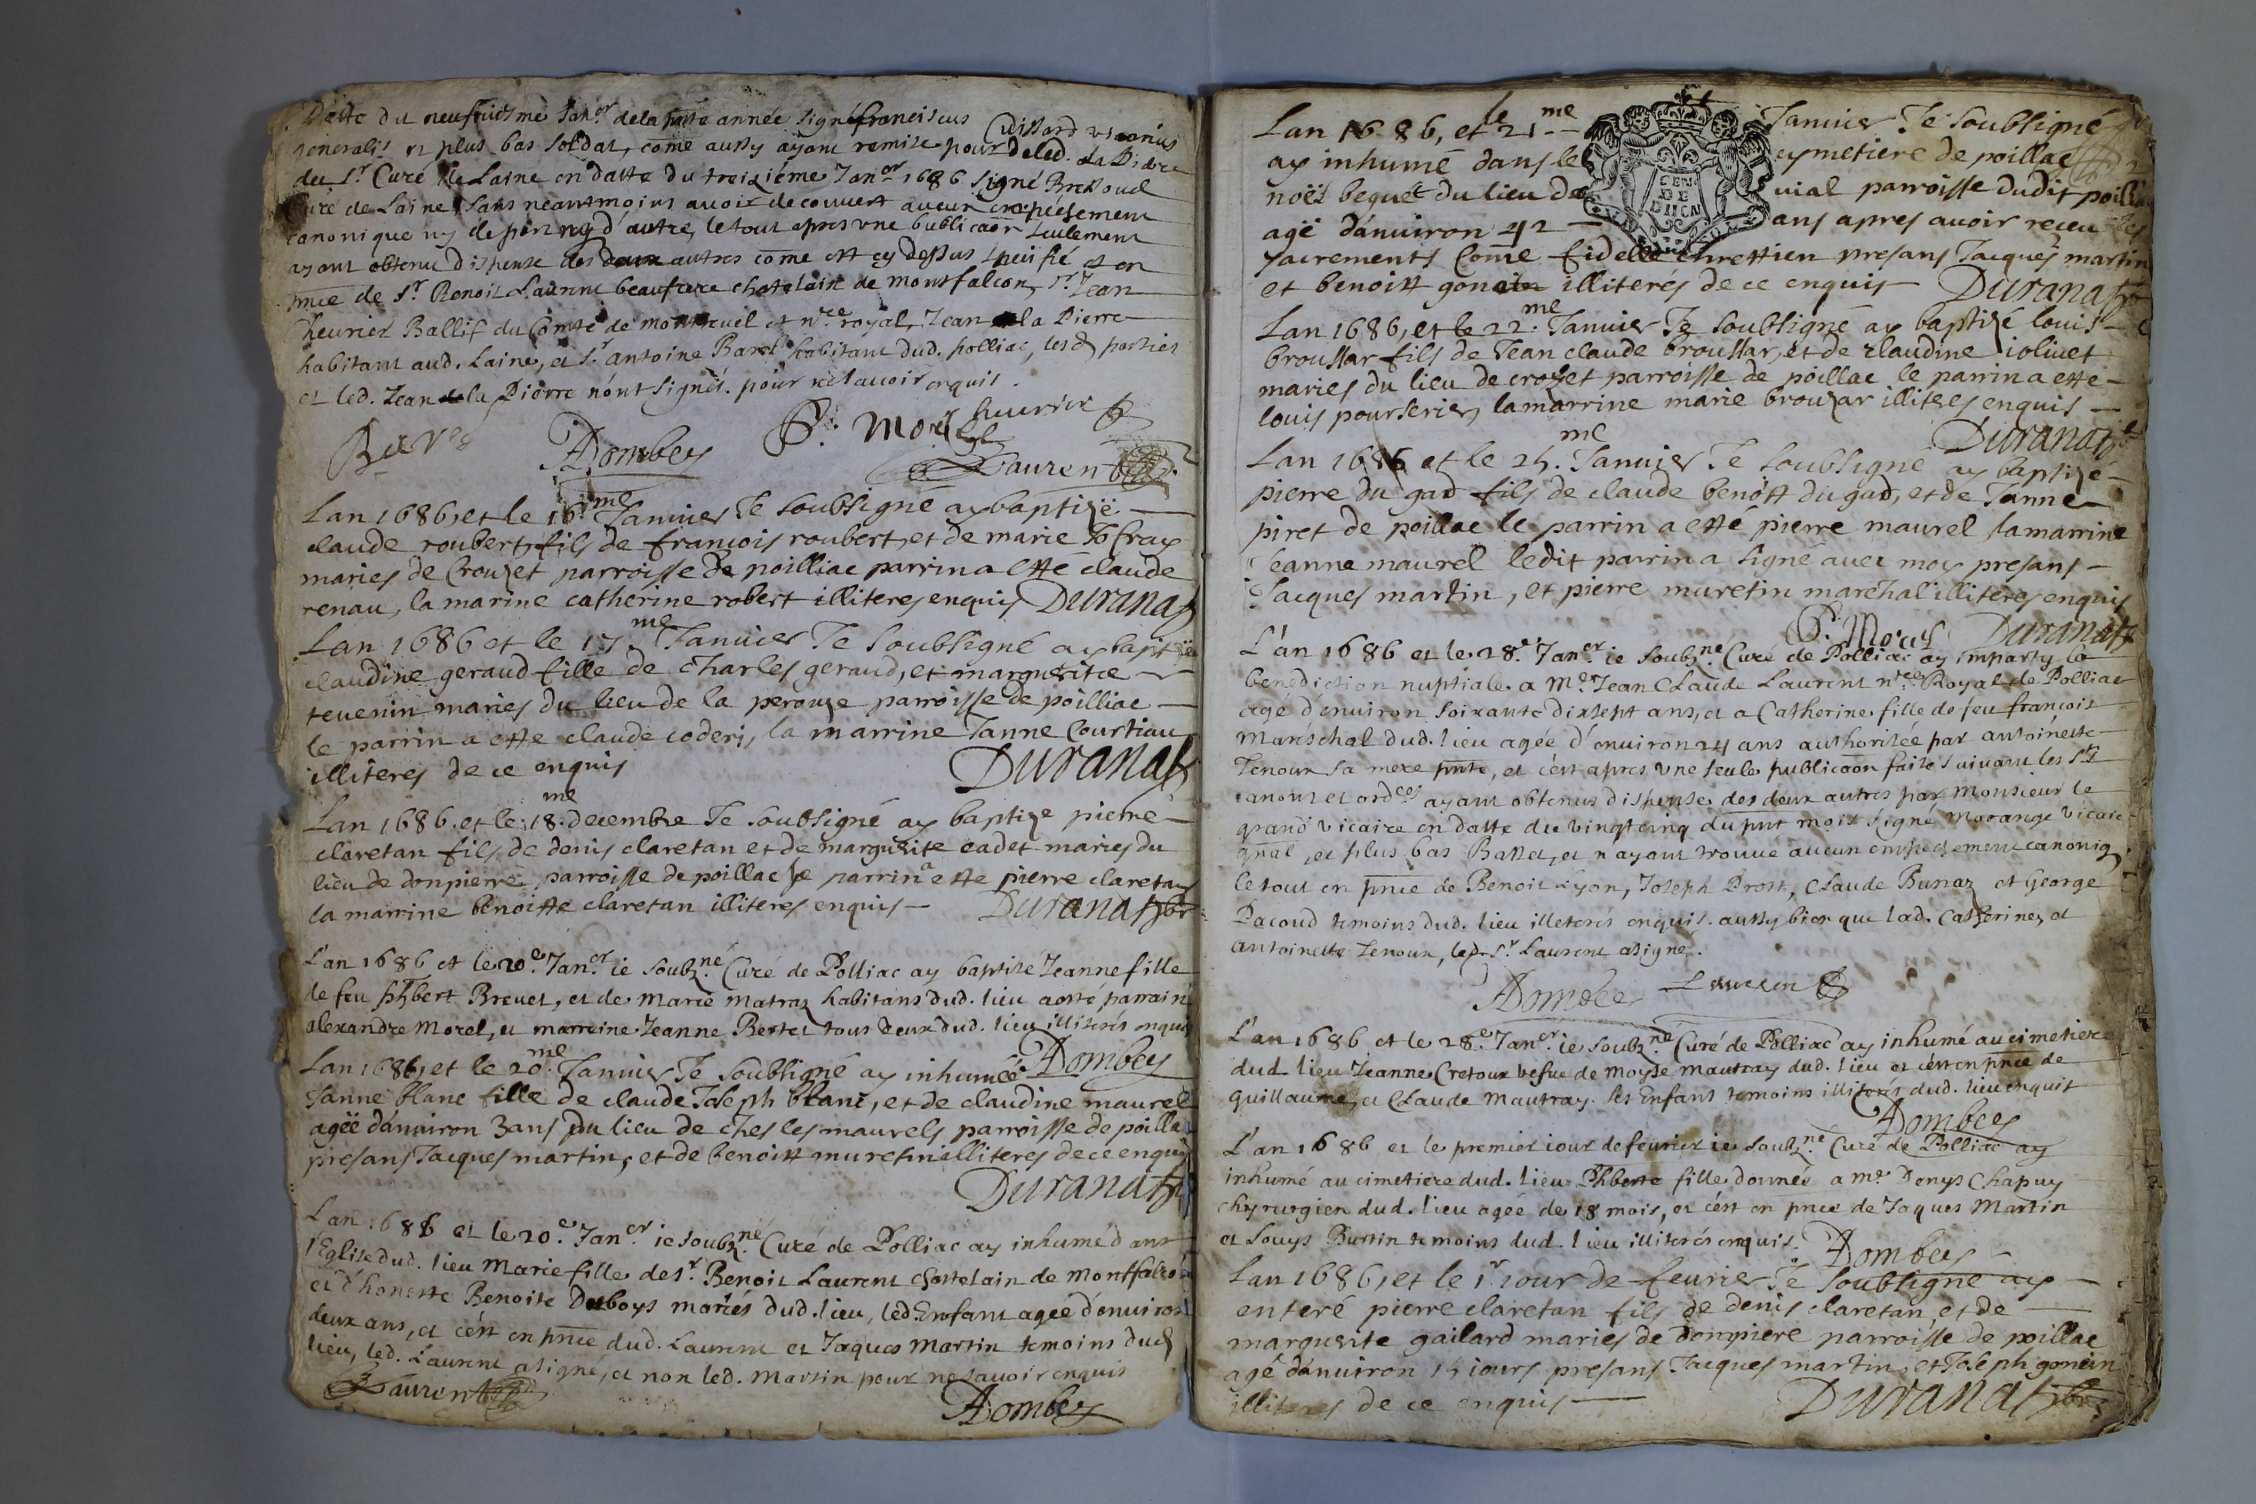 Datte du neufuiesme Jan.er de la susditte année signé franciscus Cuissard vicarius
generalis et plus bas soldat, come aussy ayant remise pour deled. La Pierre
du Sr Curé de Laine en datte du treizième Jan.er 1686 Signé
Curé de Laine sans neantmoins auoir decouvert aucun empéchement
canonique ny de part ny d'autre, le tout apres vne publicaon seulement
ayant obtenu dispense des deux autres come est cy dessus specifié et en
pnce de Sr Benoit Laurent beaufrere chatelain de montfalcon, Sr Jean
heurier Ballif du Comté de montreuel et nre royal, Jean de la Pierre
habitant aud. Laine, et Sr antoine Baret habitant dud. polliac, lesd parties
et led. Jean de la Pierre n'ont signés. pour ne scauoir enquis.
ADombey P. Morel heurier
Laurent
Lan 1686, et le 16.me Januier Je soubsigné ay baptizé
claude roubert, fils de francois roubert, et de marie
maries de Crouzet parroisse de poilliac parrin a esté claude
renau, la marine catherine robert illiteres enquis Duranat
Lan 1686 et le 17.me Januier Je soubsigné ay baptizé
claudine geraud fille de charles geraud, et marguerite
teuenin maries du lieu de la perouze parroisse de poilliac
le parrin a este claude coderi, la marrine Janne Courtiau
illiteres de ce enquis Duranat
Lan 1686. et le 18. me decembre Je soubsigné ay baptize pierre
claretan fils de denis claretan et de marguerite cadet maries du
lieu de donpierre parroisse de poillac le parrin a este pierre claretan
la marrine benoitte claretan illiteres enquis Duranat pbr
L'an 1686 et le 20.e Jan.er ie soubz.né Curé de Polliac ay baptisé Jeanne fille
de feu phbert Breuet, et de Marie matraz habitans dud. lieu a esté parrain
alexandre Morel, et marreine Jeanne Bertet tous deux dud. lieu illiterés enquis
ADombey
Lan 1686, et le 20.me Januier Je soubsigné ay inhumée
Janne blanc fille de claude Joseph blanc, et de claudine maurel
agëe dánuiron 3 ans du lieu de ches les maurels parroisse de poilla
presans Jacques martin, et de benoist muretin illiteres de ce enquis
Duranat
L'an 1686 et le 20.e Jan.er ie soubz.né Curé de Polliac ay inhumé dans
l'Eglise dud. lieu Marie fille de Sr. Benoit Laurent chastelain de Montfalcon
et d'honeste Benoite Dusboys mariés dud. lieu, led. Enfant agée d'enuiron
deux ans, et c'est en pnce dud. Laurent et Jaques Martin temoins dud
lieu, led. Laurent a signé, et non led. Martin pour ne scauoir enquis
Laurent ADombey
Lan 1686, et le 21.me Januier Je soubsigné
ay inhumé dans le cymetiere de poillac
noël bequet du lieu de uial parroisse dudit poillac
agë dánuiron 42 ans apres auoir receu les
sacrements Come fidelle chrestien presans Jacques martin
et benoist gonein illiterés de ce enquis Duranat
CENS
DE
DIION
Lan 1686, et le 22.me Januier Je soubsigné ay baptizé louis
broussar fils de Jean claude broussar, et de claudine iolivet
maries du lieu de crozet parroisse de poillac le parrin a este
louis pourserier, la marrine marie brouzar illiteres enquis
Duranat
Lan 1686 et le 25.me Januier Je soubsigné ay baptizé
pierre du gad fils de claude benoist du gad, et de Janne
piret de poillac le parrin a esté pierre maurel la marrine
Jeanne maurel ledit parrin a signé auec moy presans
Jacques martin, et pierre muretin marechal illiteres enquis
P. Morel Duranat
L'an 1686 et le 28.e Jan.er ie soubz.né Curé de Polliac ay imparty la
benediction nuptiale a Me. Jean Claude Laurent nre Royal de Polliac
agé d'enuiron soixante dixsept ans, et a Catherine fille de feu francois
Mareschal dud. lieu agée d'enuiron 24 ans authorisée par antoinette
Tenoux sa mere pnte, et c'est apres vne seule publicaon faite suiuant les Sts
canons et ord.ces ayant obtenus dispense des deux autres par Monsieur le
grand vicaire en datte du vingt cinq du pnt mois signé Morange vicaire
gnal, et plus bas Basset, et n ayant trouué aucun empechement canoniq
le tout en pnce de Benoit Lyon, Joseph Drost, Claude Bunaz et George
Pacoud temoins dud. lieu illiterés enquis. aussy bien que lad. Catherine, et
antoinette Tenoux, led. Sr. Laurent a signé.
ADombey Laurent
L'an 1686 et le 28.e Jan.er ie soubz.né Curé de Polliac ay inhumé au cimetiere
dud. lieu Jeanne Cretoux vefue de Moyse Mautray dud. lieu et c'est en pnce de
Guillaume, et Claude Mautray. ses Enfans temoins illiterés dud. lieu enquis
ADombey
L'an 1686 et le premier iour de feurier ie soubz.né Curé de Polliac ay
inhumé au cimetiere dud. lieu Phberte fille donnée a me. Denys Chapuy
chyrurgien dud. lieu agée de 18 mois, et c'est en pnce de Jaques Martin
et Louys Burtin temoins dud. lieu illiterés enquis. ADombey
Lan 1686, et le 1r. iour de feurier Je soubsigné ay
enteré pierre claretan fils de denis claretan, et de
marguerite gailard maries de donpiere parroisse de poillac
agé dánuiron 15 iours presans Jacques martin, et Joseph gonein
illiteres de ce enquis Duranat pbr